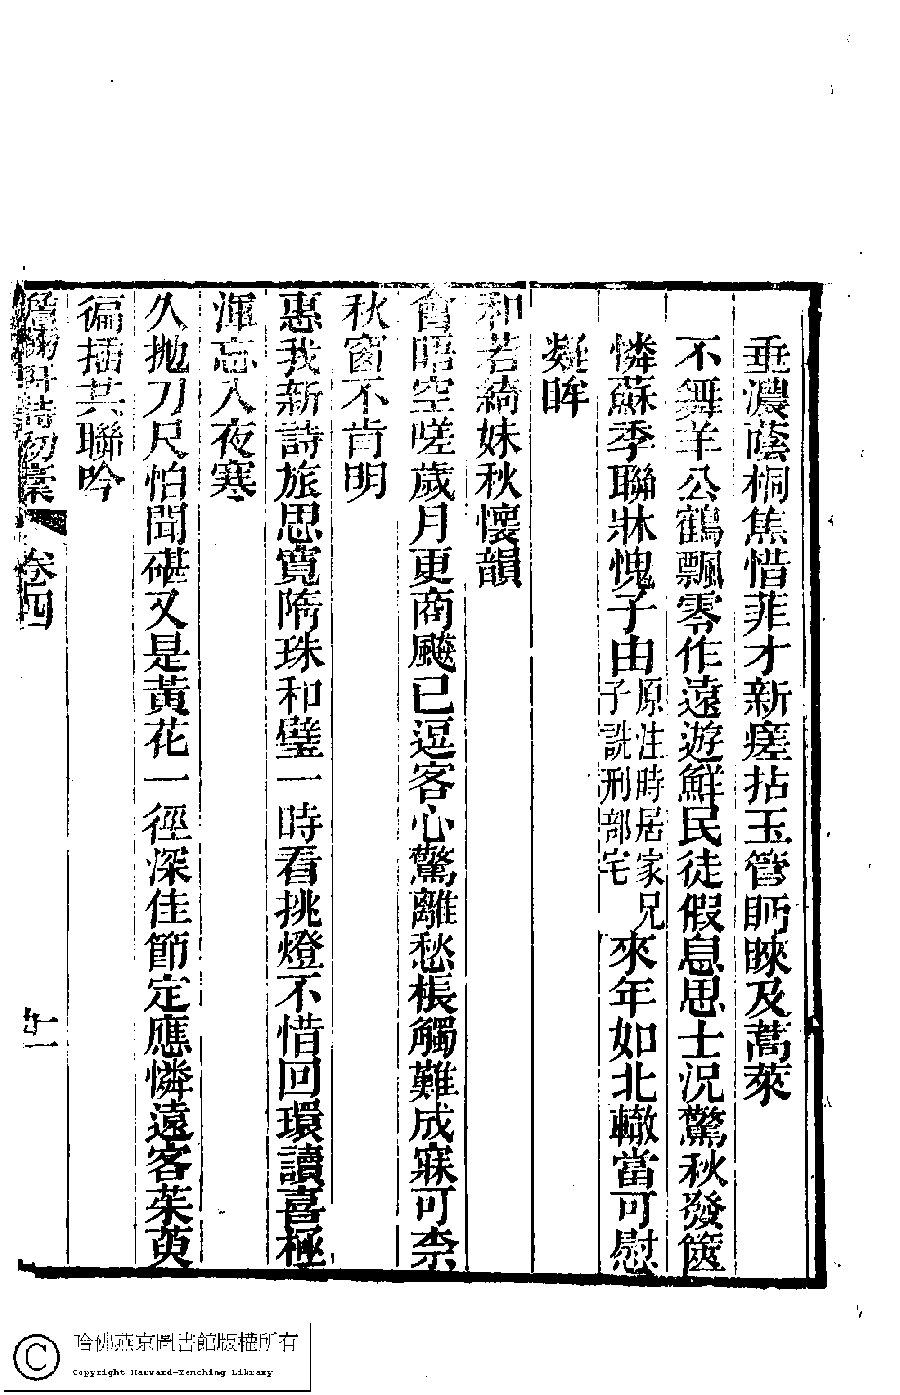 垂濃蔭桐焦惜菲才新瘥拈玉管眄睞及蒿萊
不舞羊公鶴飄零作遠遊鮮民徒假息思士況驚秋發篋
憐蘇季聯牀愧子由原注時居家兄子詵刑部宅來年如北轍當可慰
疑眸
和若綺妹秋懷韻
會晤空嗟歲月更商颷已逗客心驚離愁棖觸難成寐可柰
秋窗不肯明
惠我新詩旅思寬隋珠和璧一時看挑燈不惜回環讀喜極
渾忘入夜寒
久拋刀尺怕聞碪又是黃花一徑深佳節定應憐遠客茱萸
徧插其聯吟
澹鞠軒詩初稾 卷四 十一
哈佛燕京圖書館版權所有
Copyright Harvard-Yenching Library